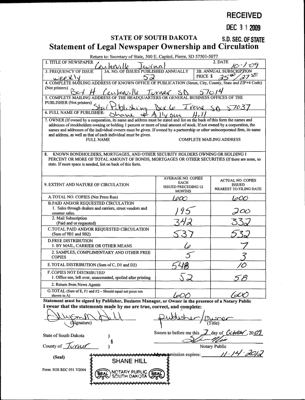 RECEIVED
DEC 31 2009
S.D. SEC. OF STATE
STATE OF SOUTH DAKOTA
Statement of Legal Newspaper Ownership and Circulation
Return to: Secretary of State, 500 E. Capitol, Pierre, SD 57501-5077
1. TITLE OF NEWSPAPER Centerville Journal
2. DATE 10-1-09
3. FREQUENCY OF ISSUE weekly
3A. NO. OF ISSUES PUBLISHED ANNUALLY 52
3B. ANNUAL SUBSCRIPTION PRICE $
4. COMPLETE MAILING ADDRESS OF KNOWN OFFICE OF PUBLICATION (Street, City, County, State and ZIP+4 Code)
(Not printers) Box H Centerville Turner SD 57014
5. COMPLETE MAILING ADDRESS OF THE HEADQUARTERS OR GENERAL BUSINESS OFFICES OF THE
PUBLISHER (Not printer) Star Publishing Box 6 Irene SD 57037
6. FULL NAME OF PUBLISHER: Shane & Allyson Hill
7. OWNER (If owned by a corporation, its name and address must be stated and list on the back of this form the names and
addresses of stockholders owning or holding 1 percent or more of total amount of stock. If not owned by a corporation, the
names and addresses of the individual owners must be given. If owned by a partnership or other unincorporated firm, its name
and address, as well as that of each individual must be given.
FULL NAME COMPLETE MAILING ADDRESS
8. KNOWN BONDHOLDERS, MORTGAGEES, AND OTHER SECURITY HOLDERS OWNING OR HOLDING 1
PERCENT OR MORE TOTAL AMOUNT OF BONDS, MORTGAGES OR OTHER SECURITIES (If there are none, so
state. If more space is needed, list on back of this form.
9. EXTENT AND NATURE OF CIRCULATION
AVERAGE NO. COPIES EACH ISSUED PRECEDING 12 MONTHS
ACTUAL NO. COPIES ISSUED NEAREST TO FILING DATE
A. TOTAL NO. COPIES (Net Press Run) 600 600
B. PAID AND/OR REQUESTED CIRCULATION
1. Sales through dealers and carriers, street vendors and counter sales. 195 200
2. Mail Subscription (Paid and or requested) 342 332
C. TOTAL PAID AND/OR REQUESTED CIRCULATION (Sum of 9B1 and 9B2) 537 532
D. FREE DISTRIBUTION
1. BY MAIL, CARRIER OR OTHER MEANS 6 7
2. SAMPLES, COMPLIMENTARY AND OTHER FREE COPIES 5 3
E. TOTAL DISTRIBUTION (Sum of C, D1 and D2) 548 10
F. COPIES NOT DISTRIBUTED
1. Office use, left over, unaccounted, spoiled after printing 52 58
2. Return from News Agents
G. TOTAL (Sum of E, F1 and F2 - Should equal net press run shown in A) 600 600
Statement must be signed by Publisher, Business Manager, or Owner in the presence of a Notary Public
I swear that the statements made by me are true, correct, and complete:
Allyson Hill publisher/owner
(Signature) (Title)
State of South Dakota )
County of Turner )
Sworn to before me this 1 day of October, 2009
Notary Public
expires: 11-14-2012
(Seal)
SHANE HILL
SEAL NOTARY PUBLIC SOUTH DAKOTA SEAL